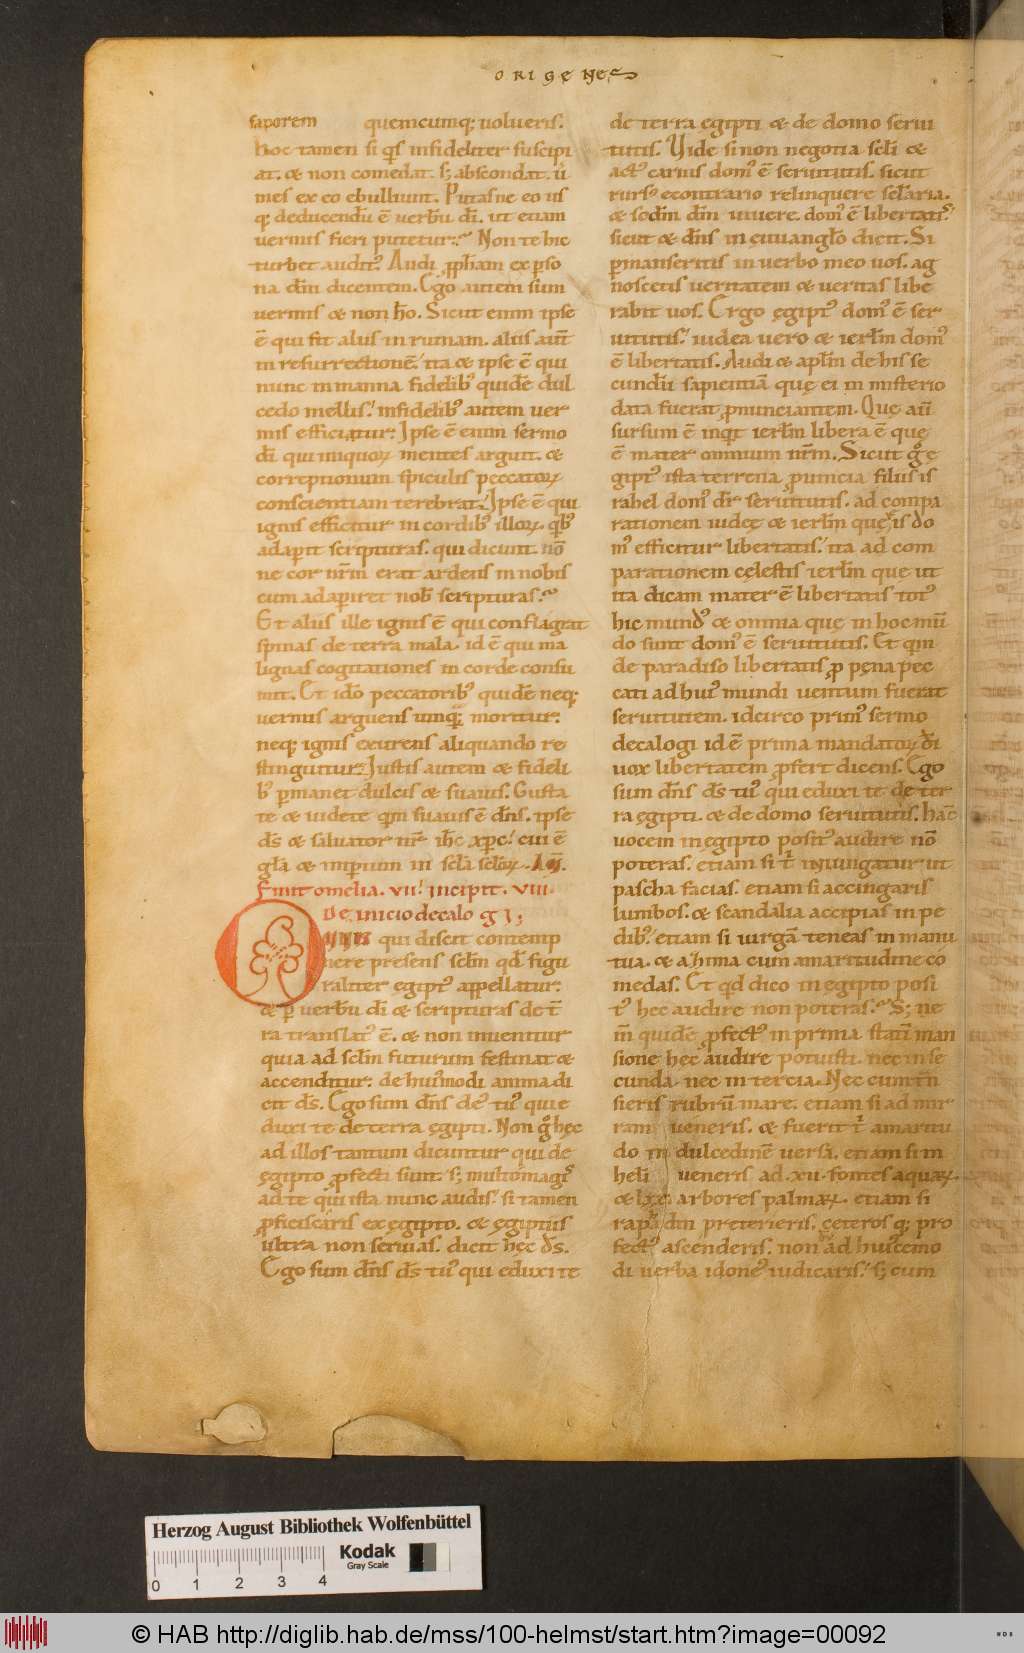 ORIGENES
saporem quemcumq; uolueris.
hoc tamen si q̄s infideliter suscipi
at. & non comedat. s; abscondat. u̇
mes ex eo ebulliunt. Putasne eo us
q; deducendū ē uerbū dī. ut etiam
uermis fieri putetur? Non te hic
turbet auditꝰ. Audi ꝓph̄am ex ꝑso
na dn̄i dicentem. Ego autem sum
uermis & non hō. Sicut enim ipse
ē qui fit aliis in ruinam. aliis aut̄
in resurrectionē. ita & ipse ē qui
nunc in manna fidelibꝰ quidē dul
cedo mellis. infidelibꝰ autem uer
mis efficiatur. Ipse ē enim sermo
dī qui iniquoꝝ mentes arguit. &
correptionum spiculis peccatoꝝ
conscientiam terebrat. Ipse ē qui
ignis efficitur in cordibꝰ illoꝝ. qͥbꝰ
adaperit scripturas. qui dicunt. nō
ne cor nr̄m erat ardens in nobis
cum adaperiret nob̄ scripturas?
Et aliis ille ignis ē qui conflagrat
spinas de terra mala. id ē qui ma
lignas cogitationes in corde consu
mit. Et ido peccatoribꝰ quidē neq;
uermis arguens umq̄; moritur.
neq; ignis exurens aliquando re
stinguitur. Iustis autem & fideli
bꝰ ꝑmanet dulcis & suauis. Gusta
te & uidete qm̄ suauis ē dn̄s. ipse
dſ & saluator nr̄ ih̄c xp̄c. cui ē
gl̄a & imperium in sc̄la sc̄loꝝ. Am̄.
Finit omelia. vii. incipit. viii.
De inicio decalogi;
OMNIS qui discit contemp
nere presens sc̄lm qd̄ figu
raliter egiptꝰ appellatur.
& ꝑ uerbū dī & scripturas de t̄
ra translatꝰ ē. & non inuenitur
quia ad sc̄lm futurum festinat &
accenditur. de huiꝰmodi anima di
cit ds̄. Ego sum dn̄s dſ tuꝰ qui e
duxi te de terra egipti. Non gͦ hec
ad illos tantum dicuntur qui de
egipto ꝓfecti sunt. s; multo magꝭ
ad te qui ista nunc audis. si tamen
ꝓficiscaris ex egipto. & egiptiis
ultra non seruias. dicit hec ds̄.
Ego sum dn̄s ds̄ tuꝰ qui eduxi te
de terra egipti & de domo serui
tutis. Uide si non negotia scl̄i &
actꝰ carnis domꝰ ē seruitutis. sicut
rursꝰ econtrario relinquere sclaria.
& scdm dm̄ uiuere. domꝰ ē libertatꝭ
sicut & dn̄s in euuanglo dicit. Si
ꝑmanseritis in uerbo meo uos. ag
noscetis ueritatem & ueritas libe
rabit uos. Ergo egiptꝰ domꝰ ē ser
uitutis. iudea uero & ierlm̄ domꝰ
ē libertatis. Audi & aplm̄ de his se
cundū sapientiā que ei in misterio
data fuerat ꝓnunciantem. Que aū
sursum ē inqͥt ierlm̄ libera ē que
ē mater omnium nr̄m. Sicut gͦ e
giptꝰ ista terrena ꝓuincia filiis is
rahel domꝰ dr̄ seruitutis. ad compa
rationem iudee & ierlm̄ que is do
mꝰ efficitur libertatis. ita ad com
parationem celestis ierlm̄ que ut
ita dicam mater ē libertatis totꝰ
hic mundꝰ & omnia que in hoc mū
do sunt domꝰ ē seruitutis. Et qm̄
de paradiso libertatis ꝓ pena pec
cati ad huiꝰ mundi uentum fuerat
seruitutem. idcirco primꝰ sermo
decalogi id ē prima mandatoꝝ dī
uox libertatem ꝓfert dicens. Ego
sum dn̄s ds̄ tuꝰ qui eduxi te de ter
ra egipti. & de domo seruitutis. hanc
uocem in egipto positꝰ audire nō
poteras. etiam si tͥ iniungatur ut
pascha facias. etiam si accingaris
lumbos. & scandalia accipias in pe
dibꝰ. etiam si uirgā teneas in manu
tua. & azima cum amaritudine co
medas. Et qd̄ dico in egipto posi
tꝰ hec audire non poteras? S; ne
m̄ quidē ꝓfectꝰ in prima statim man
sione hec audire potuisti. nec in se
cunda nec in tercia. Nec cum t̄n
sieris rubrū mare. etiam si ad mir
ram ueneris. & fuerit tͥ amaritu
do in dulcedinē uersa. etiam si in
heli ueneris ad .xii. fontes aquaꝝ.
& lxx. arbores palmaꝝ. etiam si
raphadin preterieris. ceteros q; pro
fectꝰ ascenderis. non ad huiꝰcemo
di uerba idoneꝰ iudicaris. s; cum
Herzog August Bibliothek Wolfenbüttel
0 1 2 3 4
Kodak
Gray Scale
© HAB http://diglib.hab.de/mss/100-helmst/start.htm?image=00092